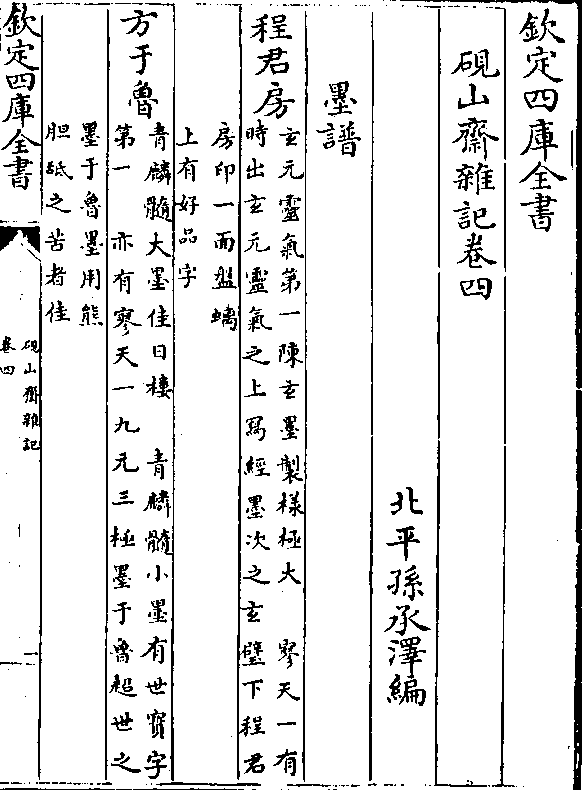 欽定四庫全書
硯山齋雜記卷四
北平孫承澤編
墨譜
程君房
玄元靈氣第一陳玄墨製様極大　寥天一有
時出玄元靈氣之上冩經墨次之玄璧下程君
房印一面盤螭
上有好品字
方于魯
青麟髓大墨佳日棲　青麟髓小墨有世寳字
第一　亦有寥天一九元三極墨于魯超世之
墨于魯墨用熊
胆舐之苦者佳
欽定四庫全書
硯山齋雜記
卷四
一